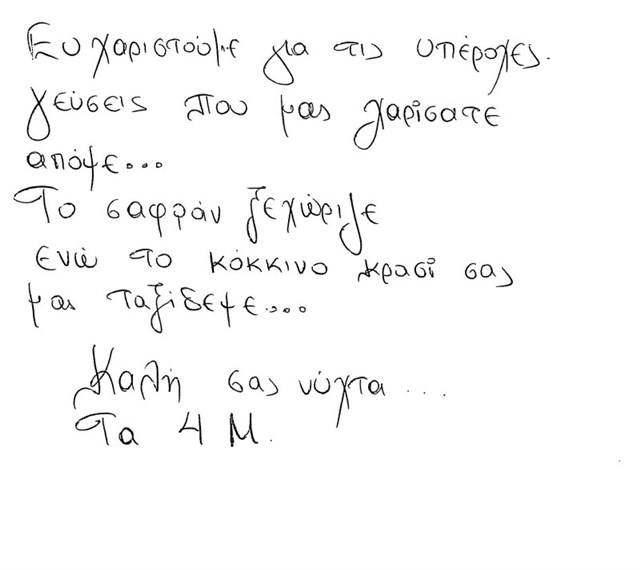 Ευχαριστούμε για τις υπέροχες.
γεύσεις που μας χαρίσατε
απόψε...
Το σαφράν ξεχώριζε
ενώ το κόκκινο κρασί σας
μας ταξίδεψε....
Καλή σας νύχτα...
Τα 4 Μ.